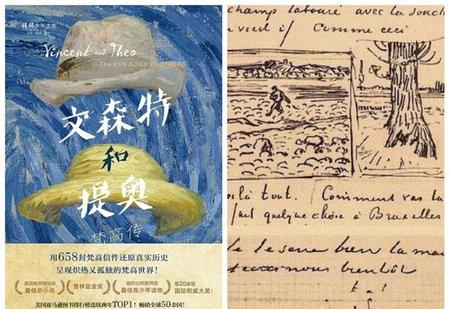 Vincent and Theo
The VAN GOGH BROTHERS
文森特
和
提奥
梵高传
用658封梵高信件还原真实历史
呈现炽热又孤独的梵高世界!
最佳青少年读物
等20余项
国际权威大奖!
美国亚马逊图书排行榜连续两年TOP1! 畅销全球50余国!
champs labouré avec la souche
comme ceci
tout. Comment vas tu
quelque chose à Bruxelles
je te serre bien la main
nous bientôt